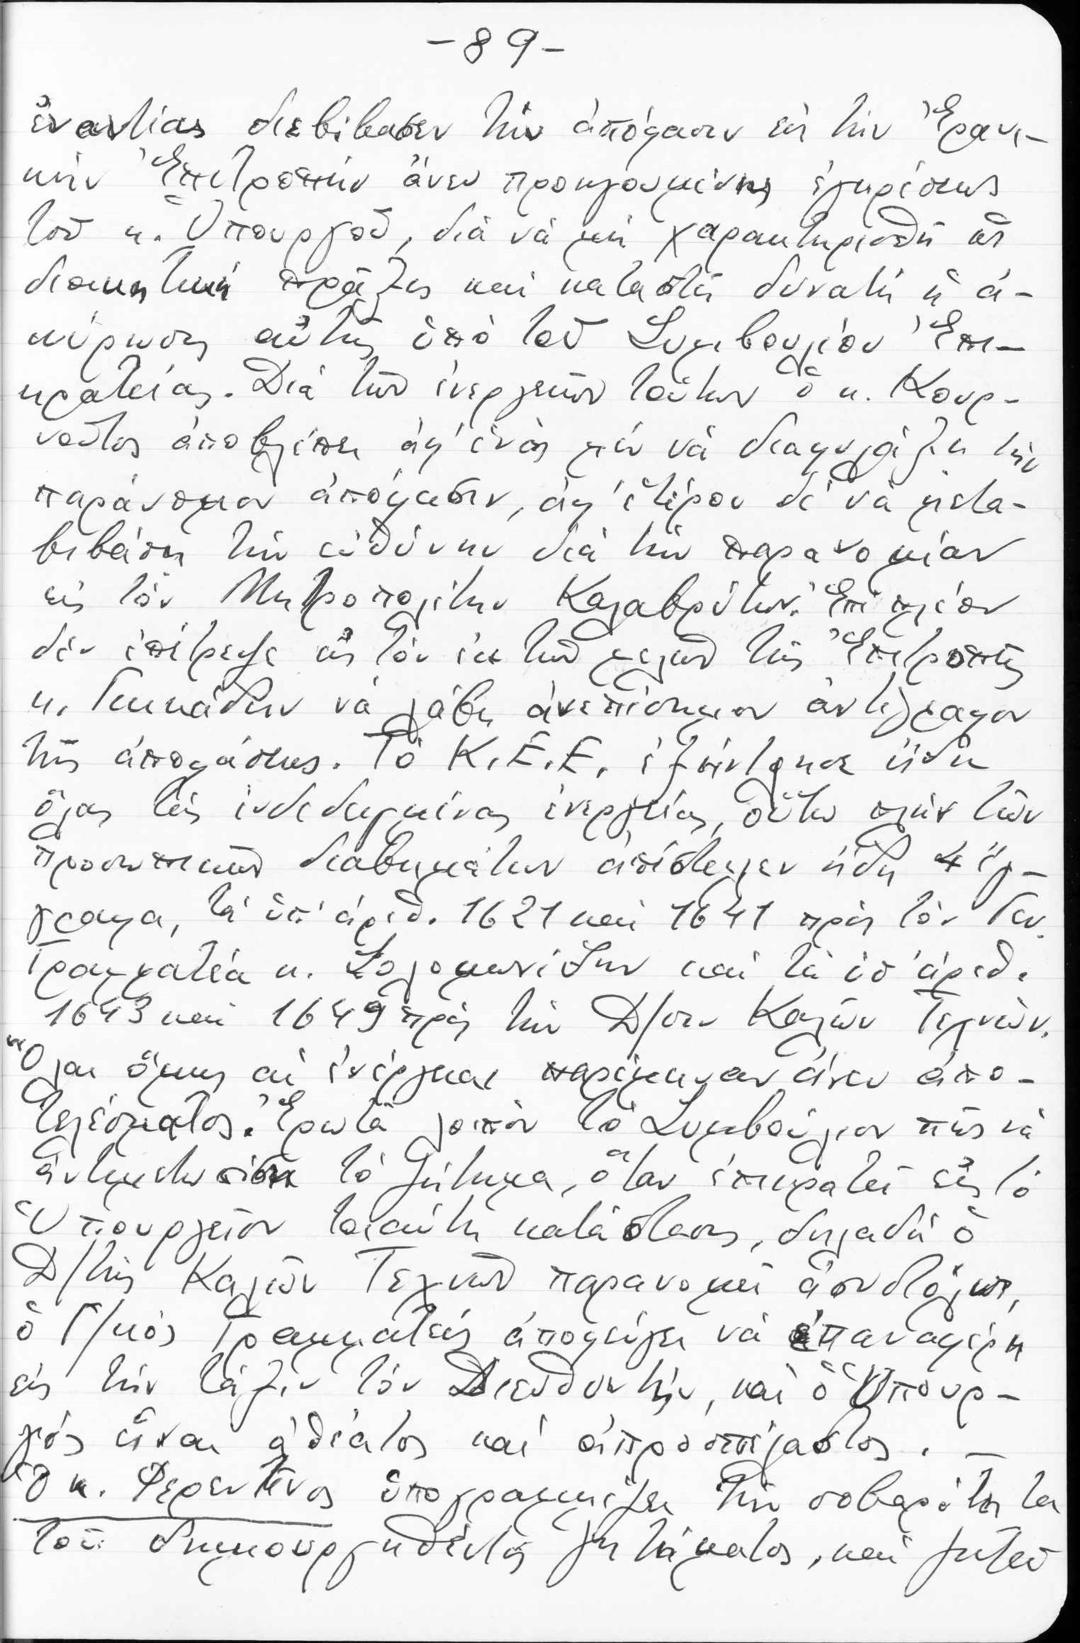 -89-
ἐναντίας διεβίβασεν τὴν ἀπόφασιν εἰς τὴν Ἐρανι-
κὴν Ἐπιτροπὴν ἄνευ προηγουμένης ἐγκρίσεως
τοῦ κ. Ὑπουργοῦ, διὰ νὰ μὴ χαρακτηρισθῇ ὡς
διοικητικὴ πρᾶξις καὶ καταστῇ δυνατὴ ἡ ἀ-
κύρωσις αὐτῆς ὑπὸ τοῦ Συμβουλίου Ἐπι-
κρατείας. Διὰ τῶν ἐνεργειῶν τούτων ὁ κ. Κουρ-
νοῦτος ἀποβλέπει ἀφ' ἑνὸς μὲν νὰ διαφυλάξῃ τὴν
παράνομον ἀπόφασιν, ἀφ' ἑτέρου δὲ νὰ μετα-
βιβάσῃ τὴν εὐθύνην διὰ τὴν παρανομίαν
εἰς τὸν Μητροπολίτην Καλαβρύτων. Ἐπὶ πλέον
δὲν ἐπέτρεψε εἰς τὸν ἐκ τῶν μελῶν τῆς Ἐπιτροπῆς
κ. νὰ λάβῃ ἀνεπίσημον ἀντίγραφον
τῆς ἀποφάσεως. Τὸ Κ.Ε.Ε. ἐξήντλησε ἤδη
ὅλας τὰς ἐνδεδειγμένας ἐνεργείας, οὕτω πλὴν τῶν
προσωπικῶν διαβημάτων ἀπέστειλεν ἤδη 4 ἔγ-
γραφα, τὰ ὑπ' ἀριθ. 1621 καὶ 1641 πρὸς τὸν Γεν.
Γραμματέα κ. Σολομωνίδην καὶ τὰ ὑπ' ἀριθ.
1643 καὶ 1649 πρὸς τὴν Δ/σιν Καλῶν Τεχνῶν.
Ὅλαι ὅμως αἱ ἐνέργειαι παρέμειναν ἄνευ ἀπο-
τελέσματος. Ἐρωτᾶ λοιπὸν τὸ Συμβούλιον πῶς νὰ
ἀντιμετωπίσῃ τὸ ζήτημα, ὅταν ἐπικρατεῖ εἰς τὸ
Ὑπουργεῖον τοιαύτη κατάστασις, δηλαδὴ ὁ
Δ/τὴς Καλῶν Τεχνῶν παρανομεῖ ἀσυστόλως,
ὁ Γ/κὸς Γραμματεὺς ἀποφεύγει νὰ ἐπαναφέρῃ
εἰς τὴν τάξιν τὸν Διευθυντήν, καὶ ὁ Ὑπουρ-
γὸς εἶναι ἀθέατος καὶ ἀπροσπέλαστος. —
Ὁ κ. Φερεντῖνος ὑπογραμμίζει τὴν σοβαρότητα
τοῦ δημιουργηθέντος ζητήματος, καὶ ζητεῖ